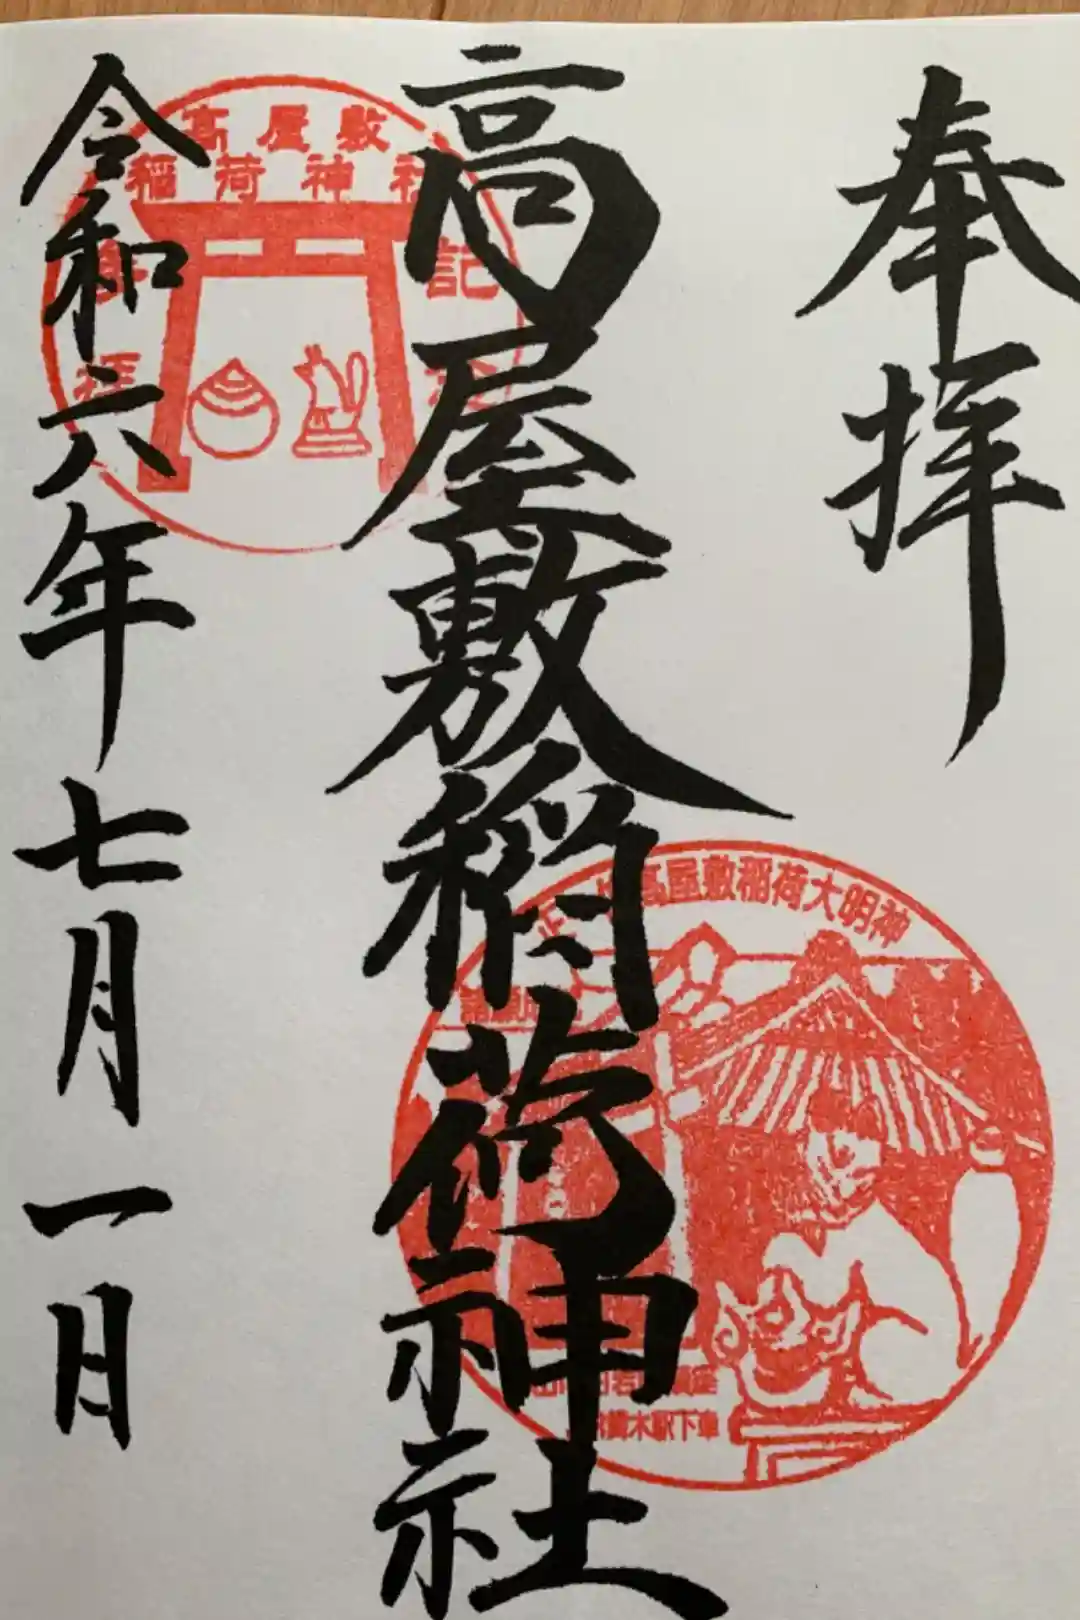 奉拝
高屋敷稲荷神社
令和六年七月一日
高屋敷
稲荷神社
参拝
記念
正一位高屋敷稲荷大明神
JR磐木駅下車